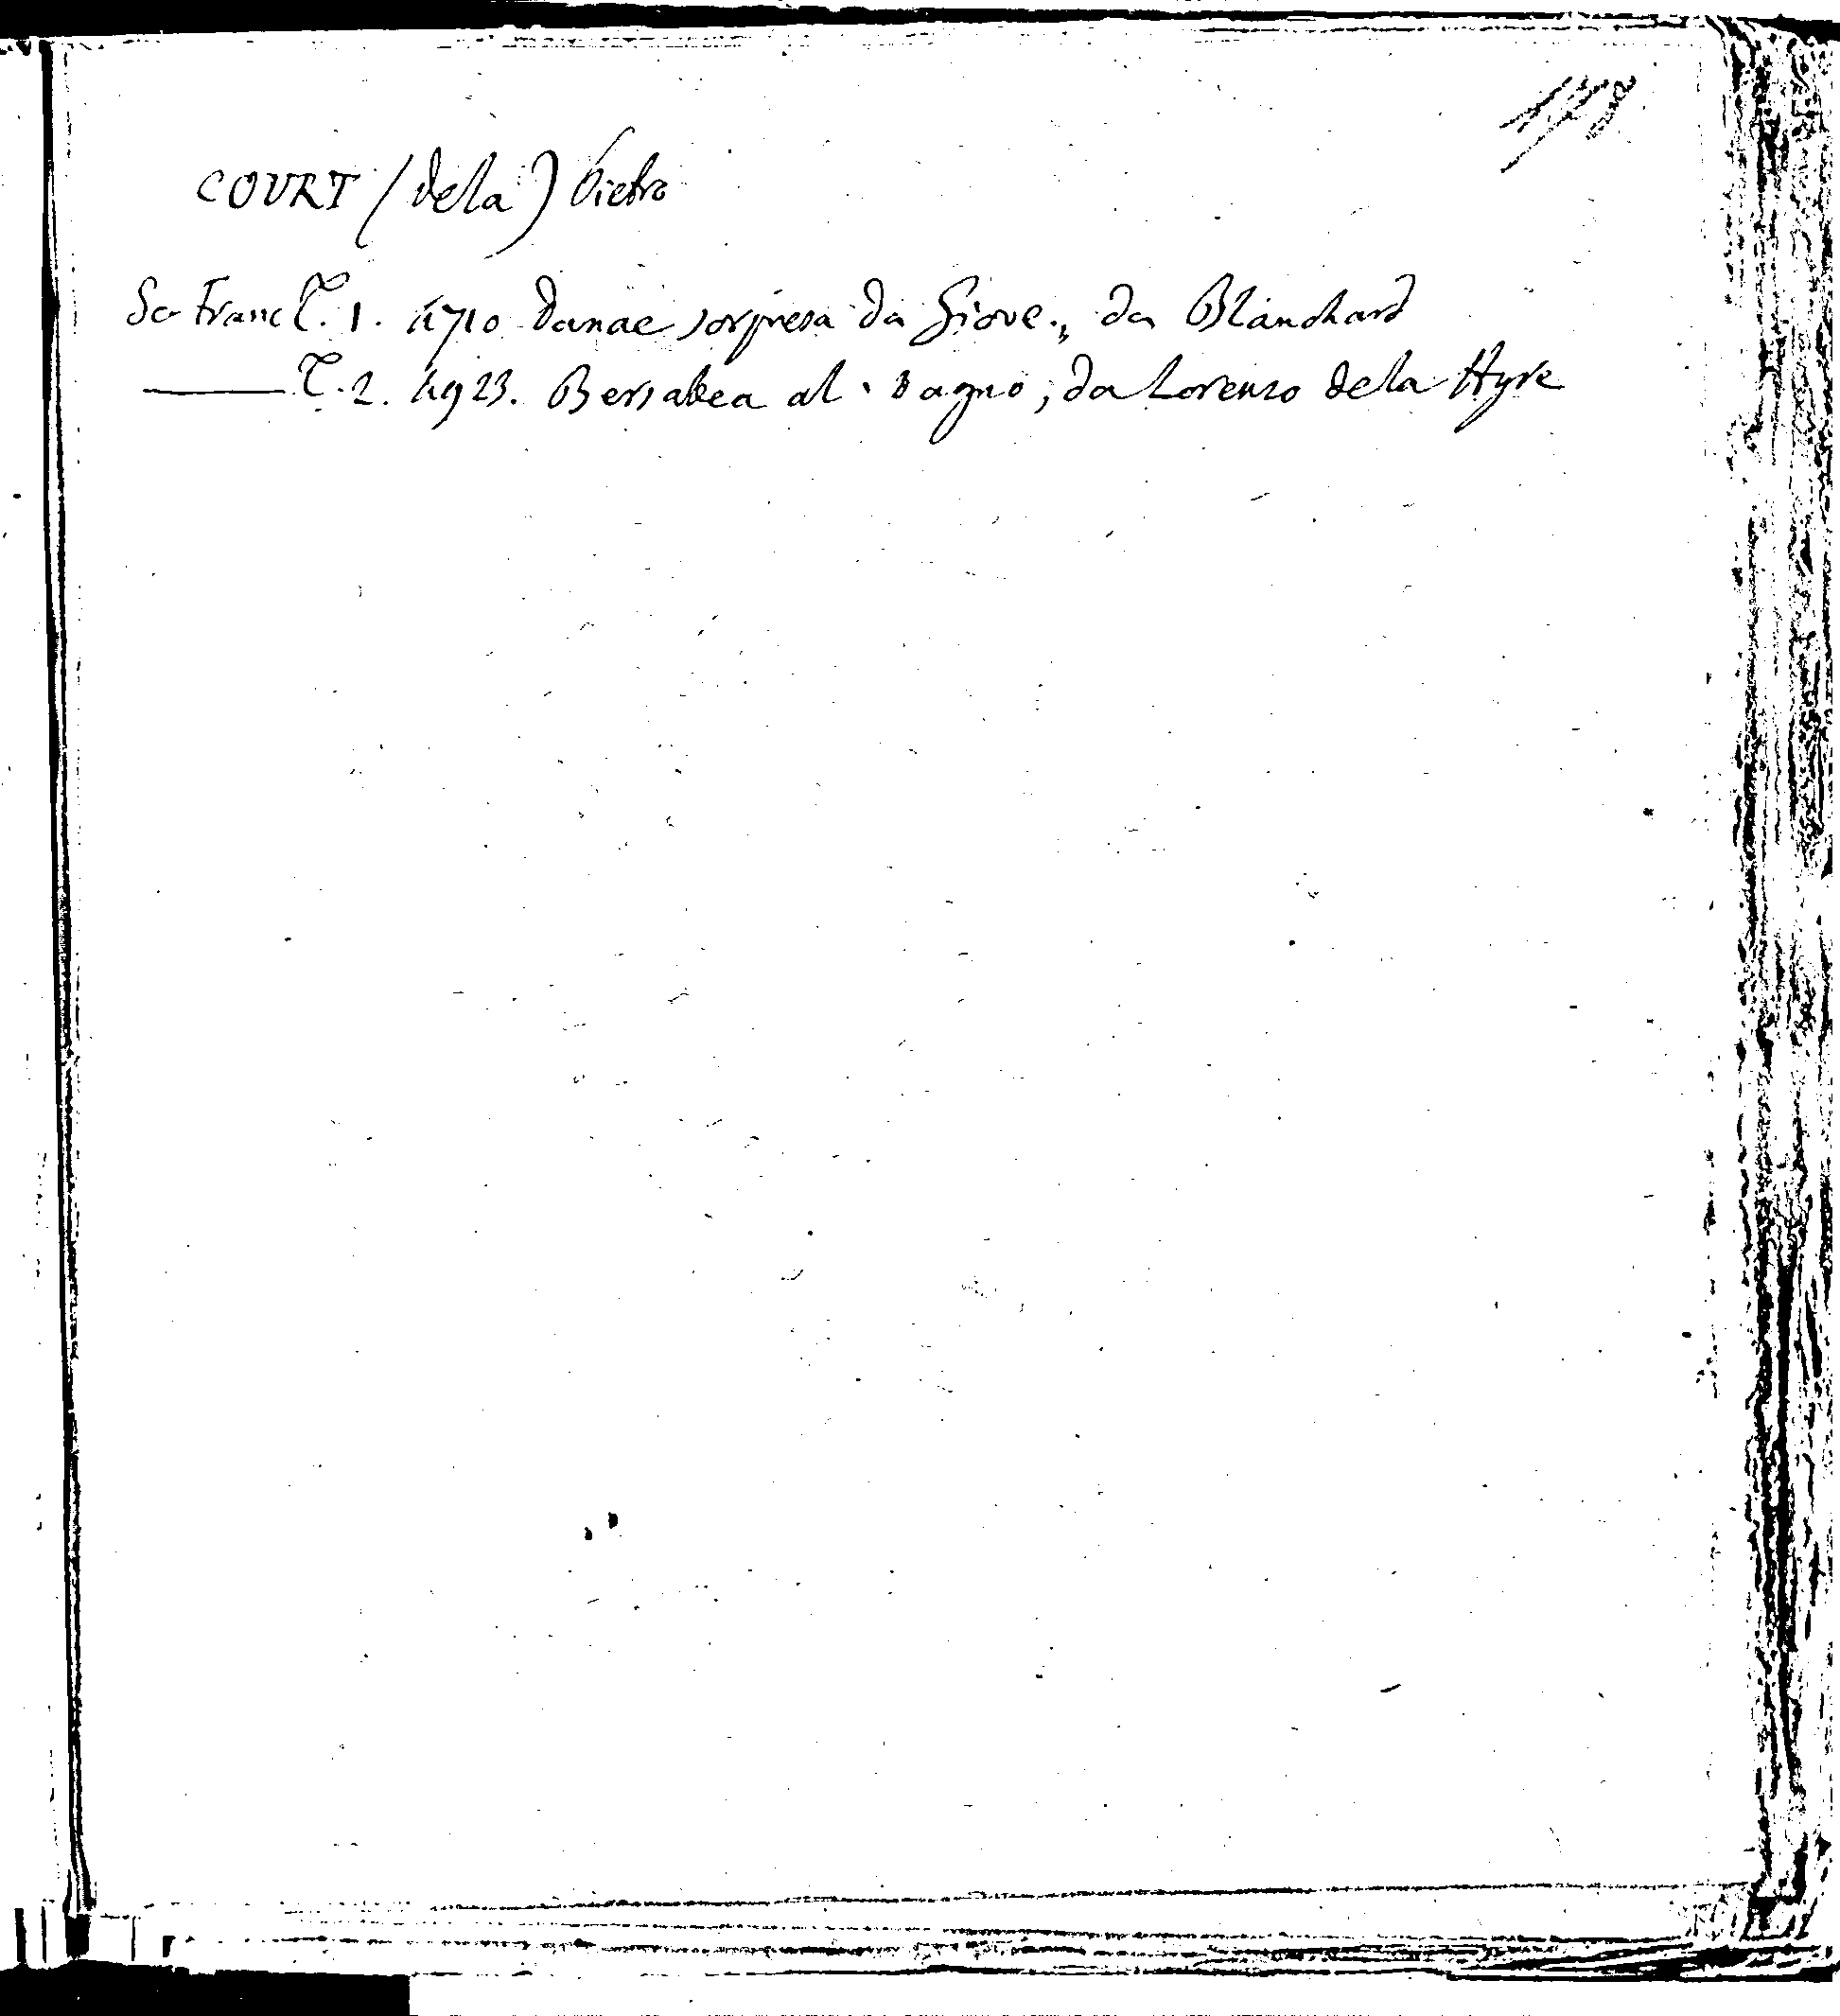 178
COURT (dela) Pietro
Sc. Franc T. 1. 4710 Danae sorpresa da Giove., da Blanchard
T. 2. 4923. Bersabea al Bagno, da Lorenzo dela Hyre